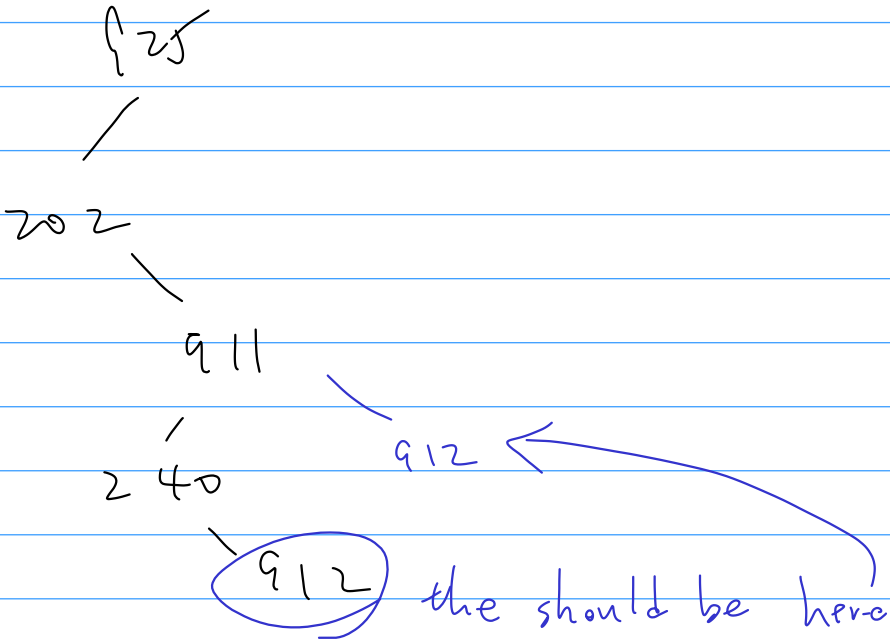 925
202
911
912
240
912 the should be here